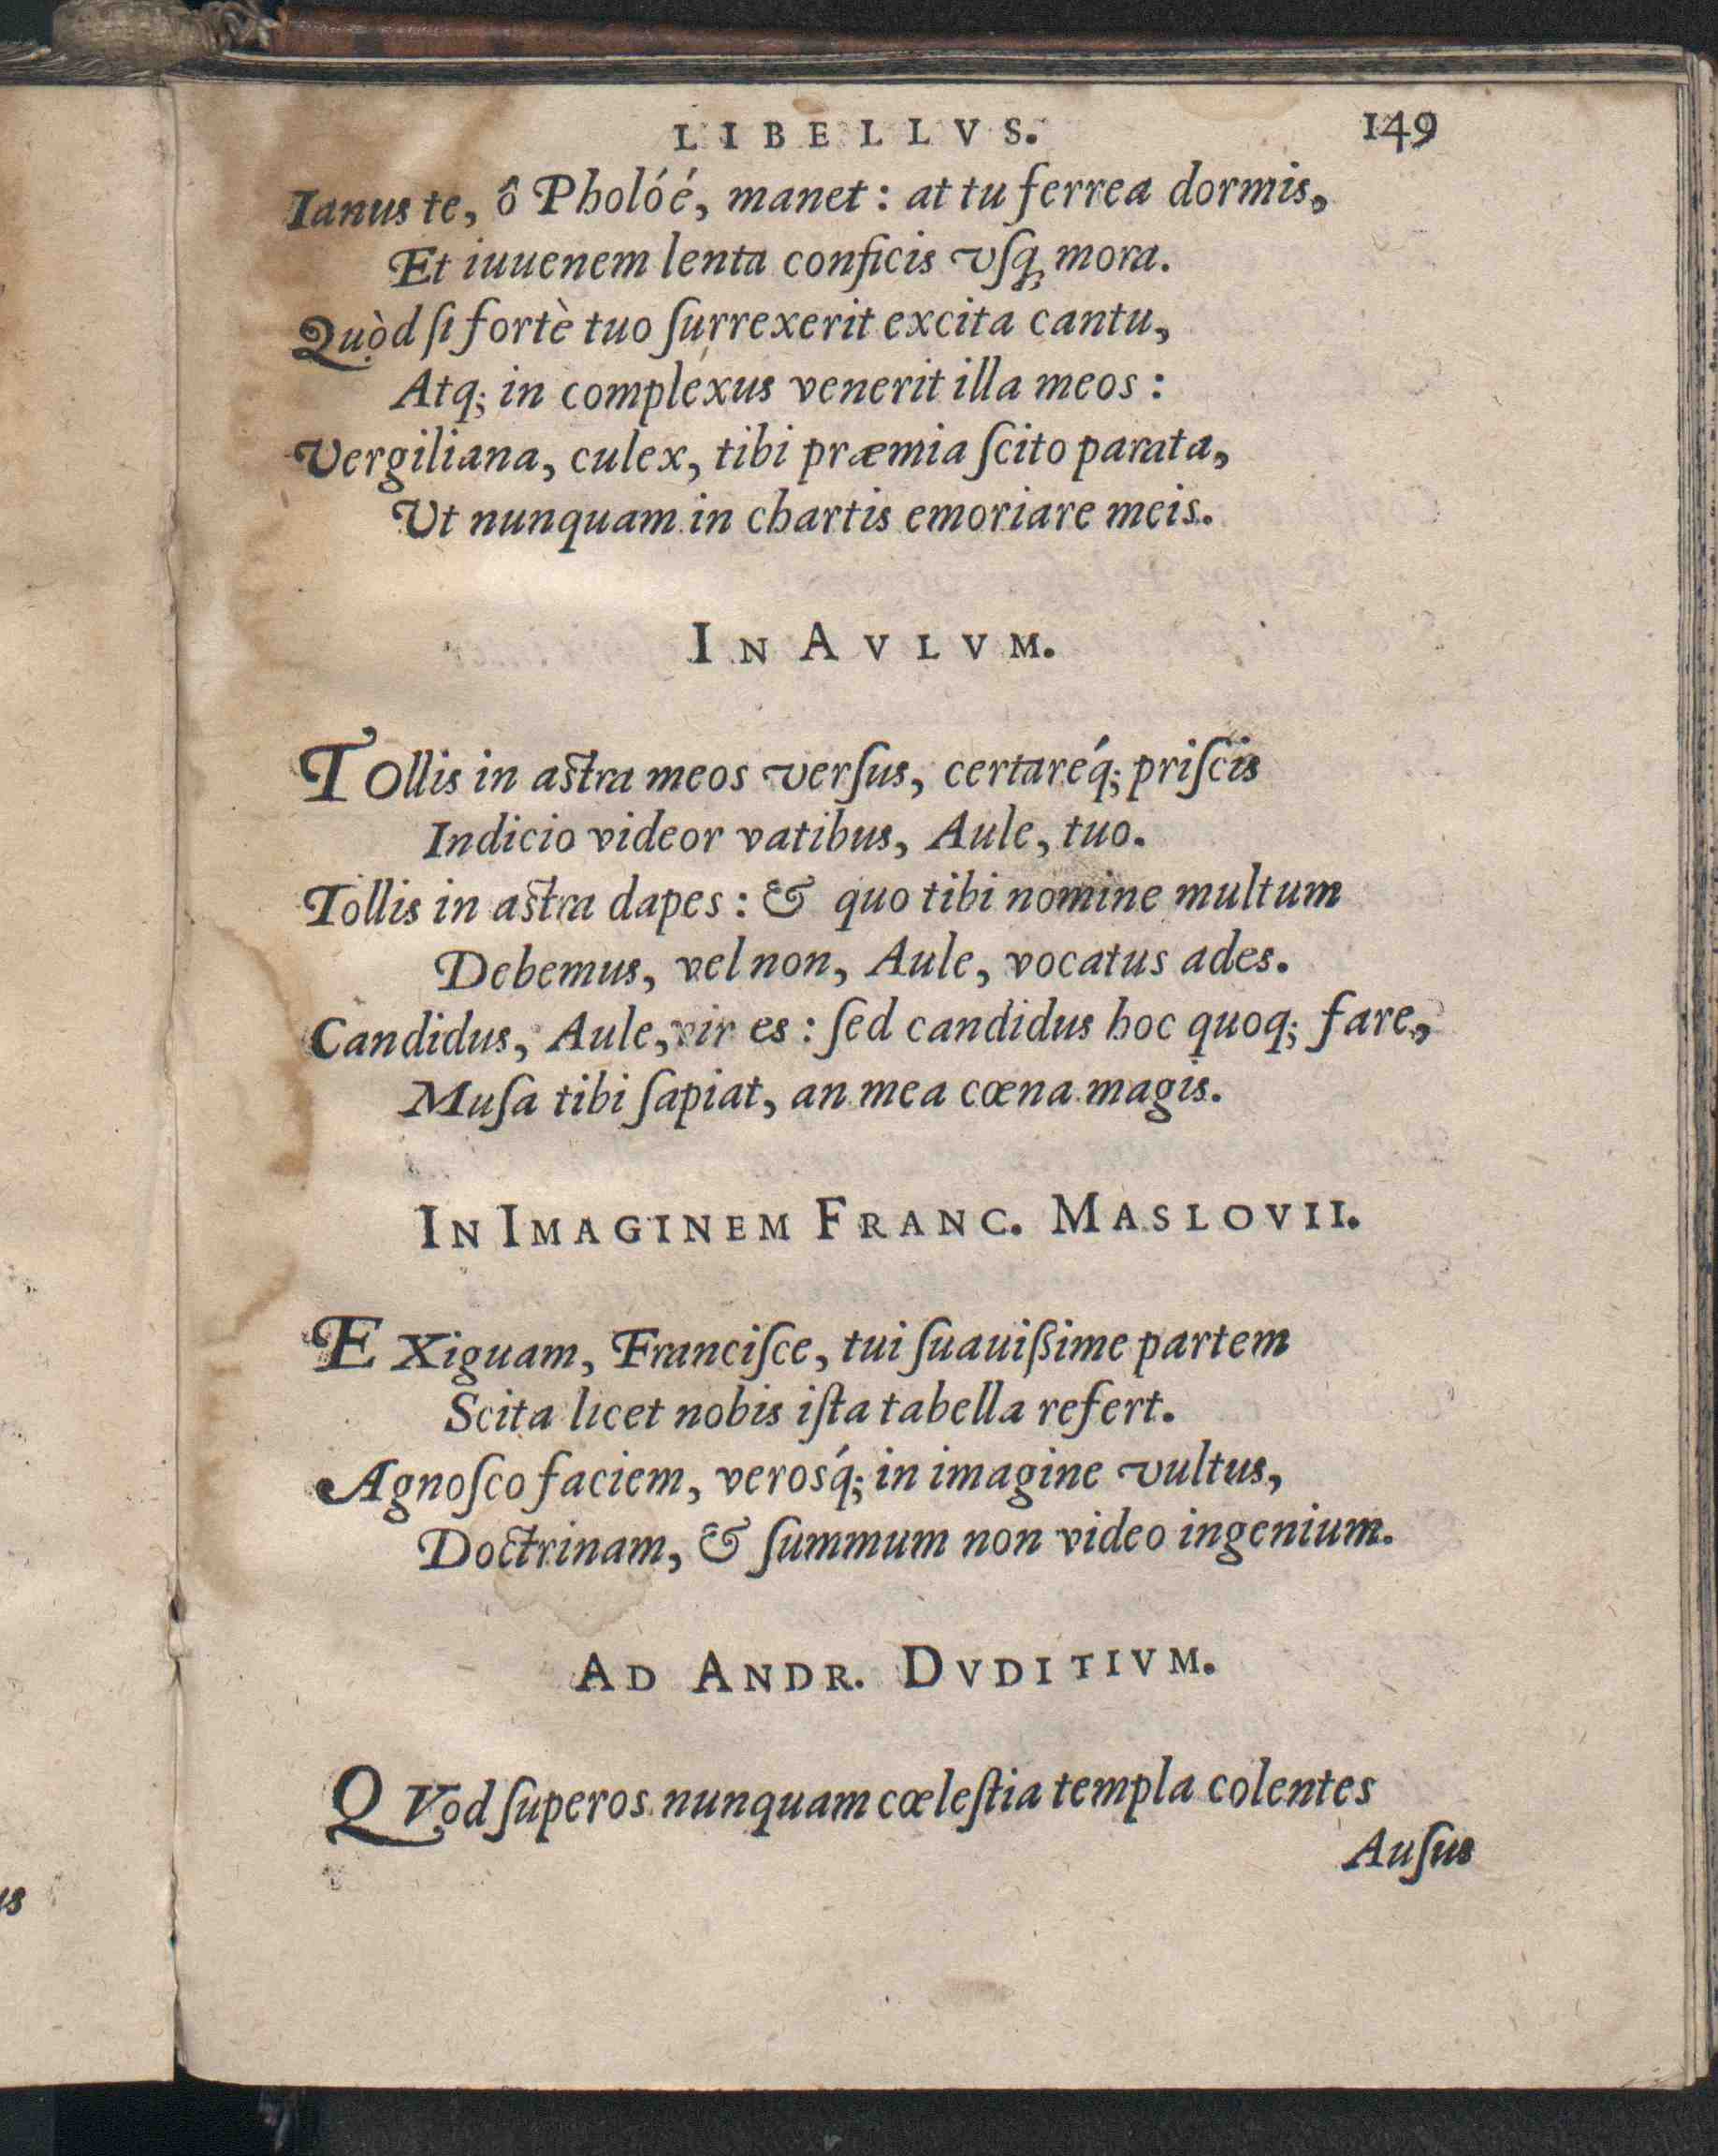 LIBELLVS. 149
Ianus te, ô Pholóé, manet: at tu ferrea dormis,
Et iuuenem lenta conficis vſq; mora.
Quòd ſi fortè tuo ſurrexerit excita cantu,
Atq; in complexus venerit illa meos:
Vergiliana, culex, tibi præmia ſcito parata,
Ut nunquam in chartis emoriare meis.
IN AVLVM.
TOllis in aſtra meos verſus, certaréq; priſcis
Indicio videor vatibus, Aule, tuo.
Tollis in aſtra dapes: & quo tibi nomine multum
Debemus, vel non, Aule, vocatus ades.
Candidus, Aule, vir es: ſed candidus hoc quoq; fare,
Muſa tibi ſapiat, an mea cœna magis.
IN IMAGINEM FRANC. MASLOVII.
EXiguam, Franciſce, tui ſuauiſsime partem
Scita licet nobis iſta tabella refert.
Agnoſco faciem, verosq́; in imagine vultus,
Doctrinam, & ſummum non video ingenium.
AD ANDR. DVDITIVM.
QVod ſuperos nunquam cœleſtia templa colentes
Auſus
us